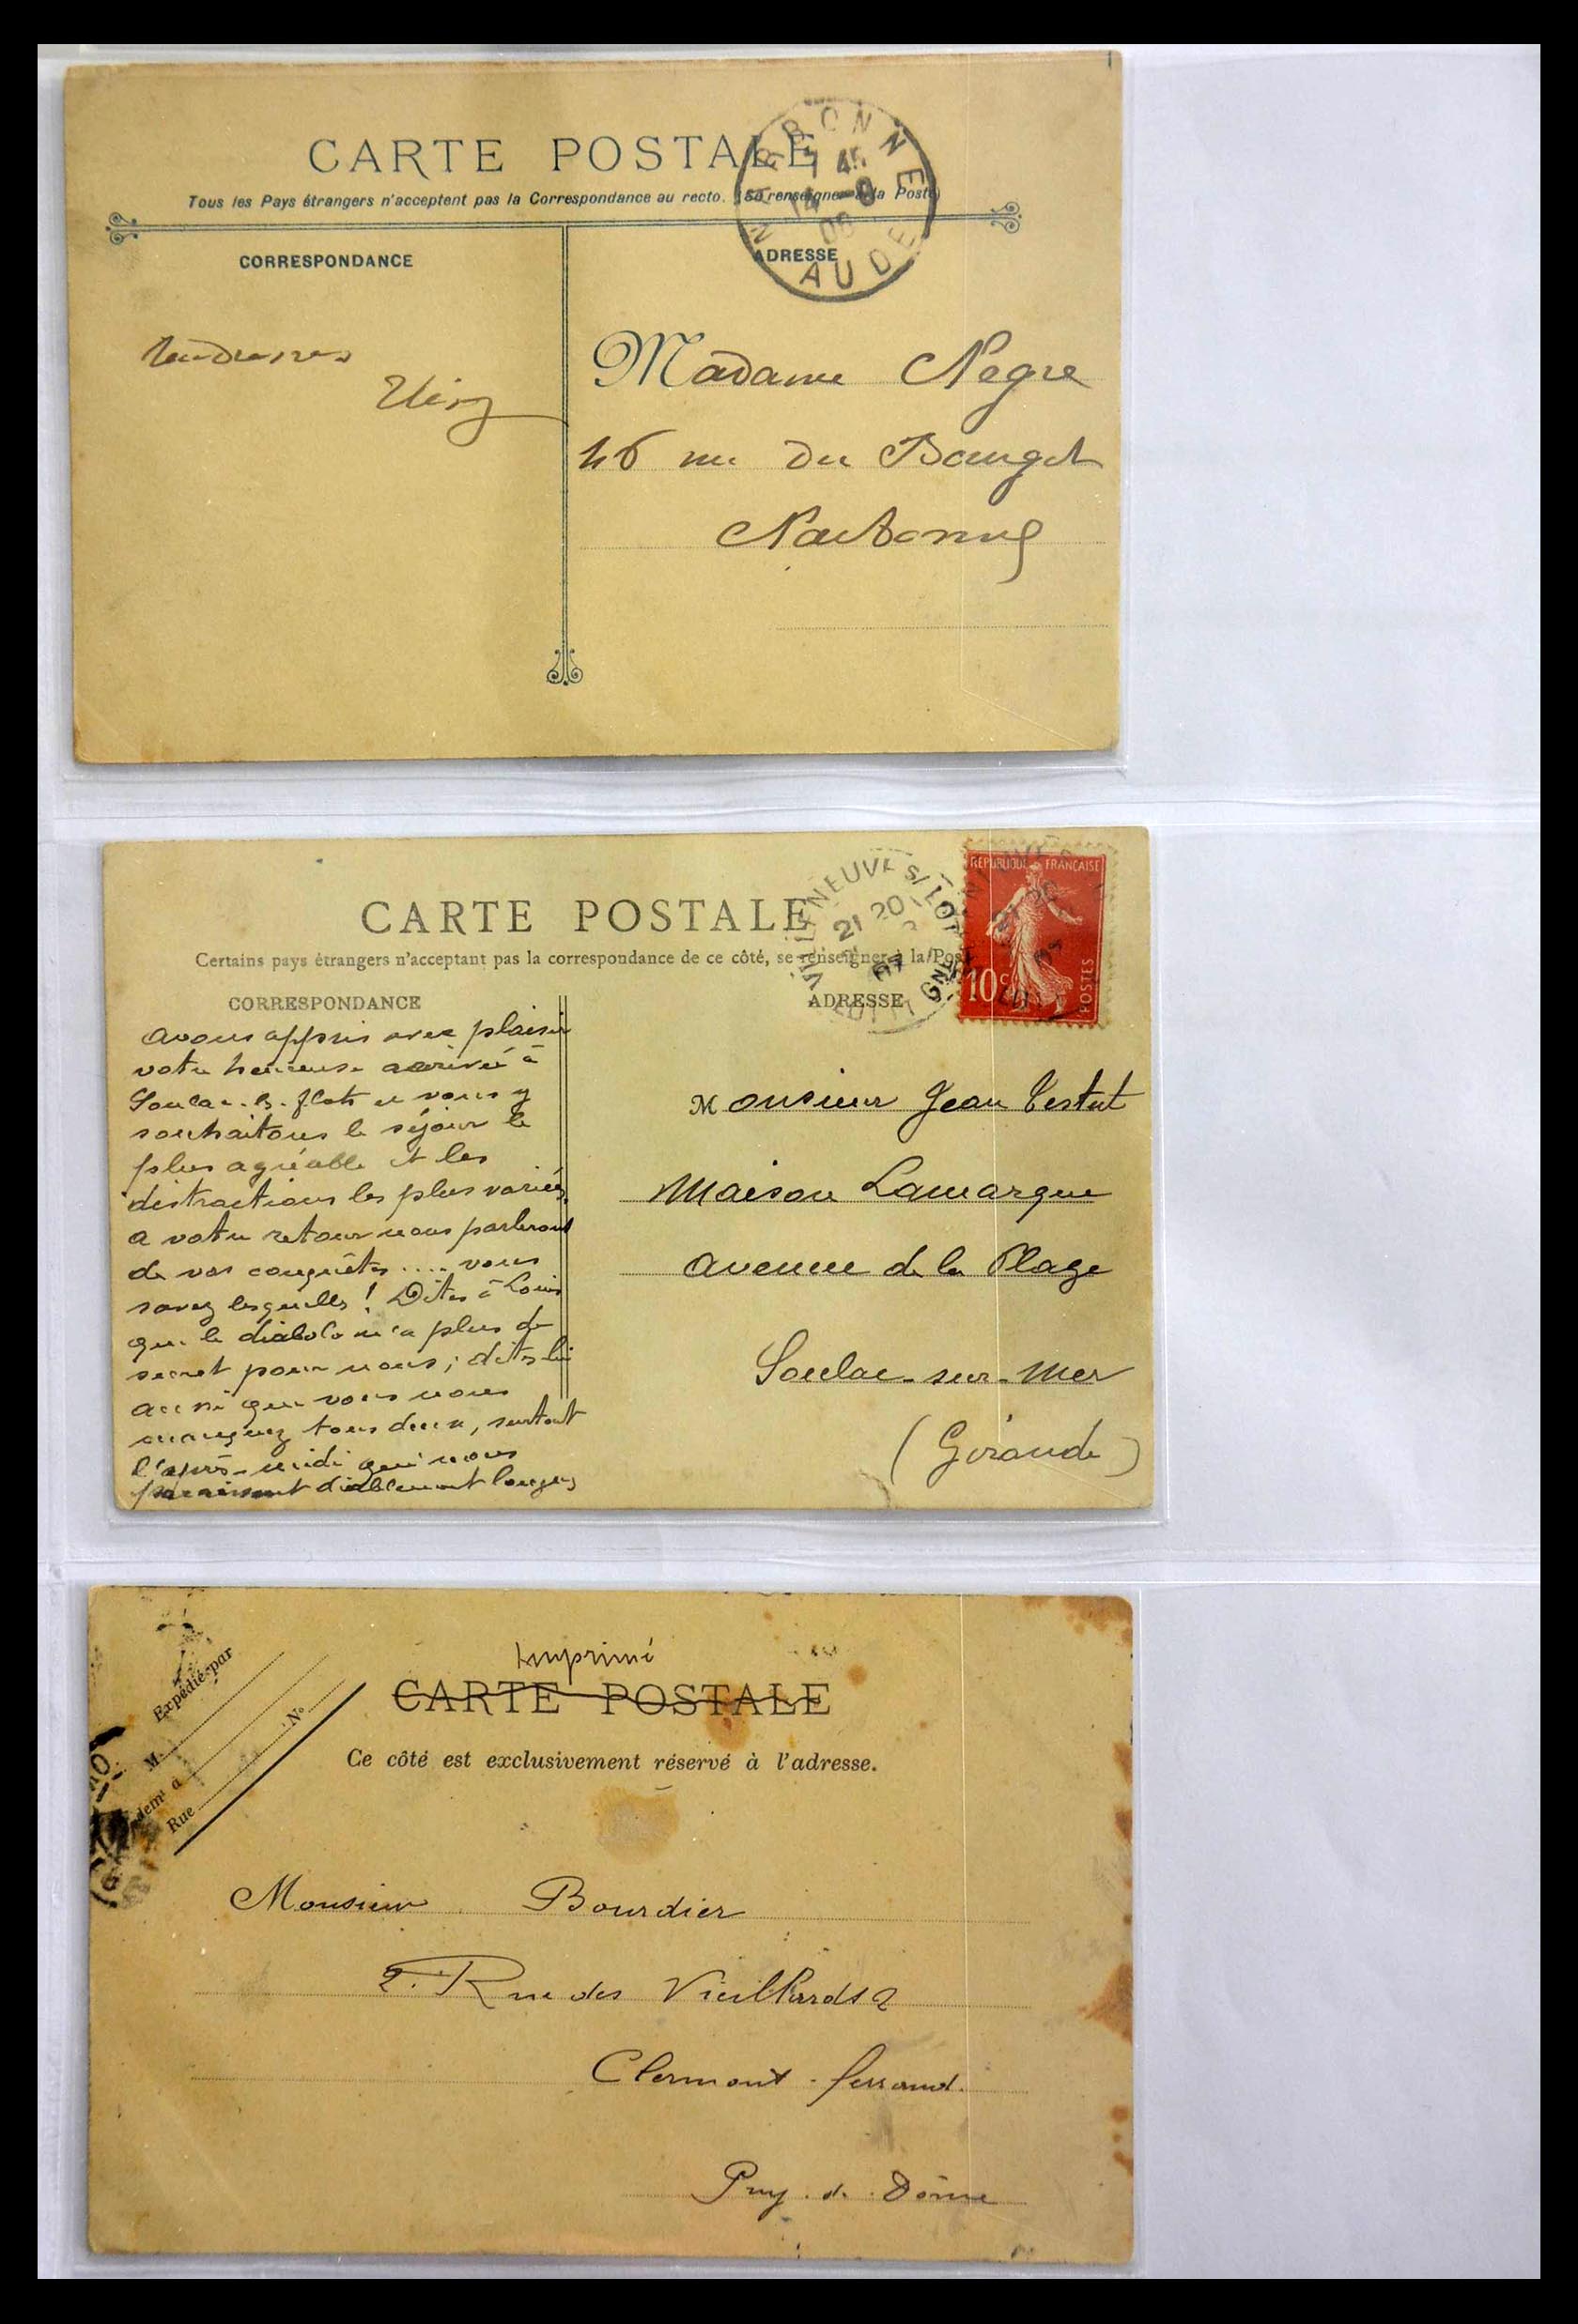 CARTE POSTALE
Tous les Pays étrangers n'acceptent pas la Correspondance au recto. (Se renseigner à la Poste)
NARBONNE
AUDE
CORRESPONDANCE
ADRESSE
Tendresses
Madame Negre
46 rue du Bourget
Narbonne
CARTE POSTALE
Certains pays étrangers n'acceptant pas la correspondance de ce côté, se renseigner à la Poste
VILLENEUVE S/ LOT
21 20
07
LOT ET GNE
REPUBLIQUE FRANÇAISE
10c
POSTES
CORRESPONDANCE
ADRESSE
avons appris avec plaisir
votre heureuse arrivée à
Soulac-s-flots et vous y
souhaitons le séjour le
plus agréable et les
distractions les plus variées.
a votre retour nous parlerons
de vos conquêtes .... vous
savez lesquelles ! Dites à Louis
que le diabolo n'a plus de
secret pour nous ; dites lui
aussi que vous nous
manquez tous deux, surtout
l'après-midi qui nous
paraissent diablement longues
Monsieur Jean Testut
Maison Lamarque
avenue de la Plage
Soulac-sur-Mer
(Gironde)
Imprimé
CARTE POSTALE
Ce côté est exclusivement réservé à l'adresse.
Expédié par
M.
demt à
Rue
No
Monsieur Bourdier
2. Rue des Vieillards 2
Clermont-ferrand.
Puy-de-Dôme